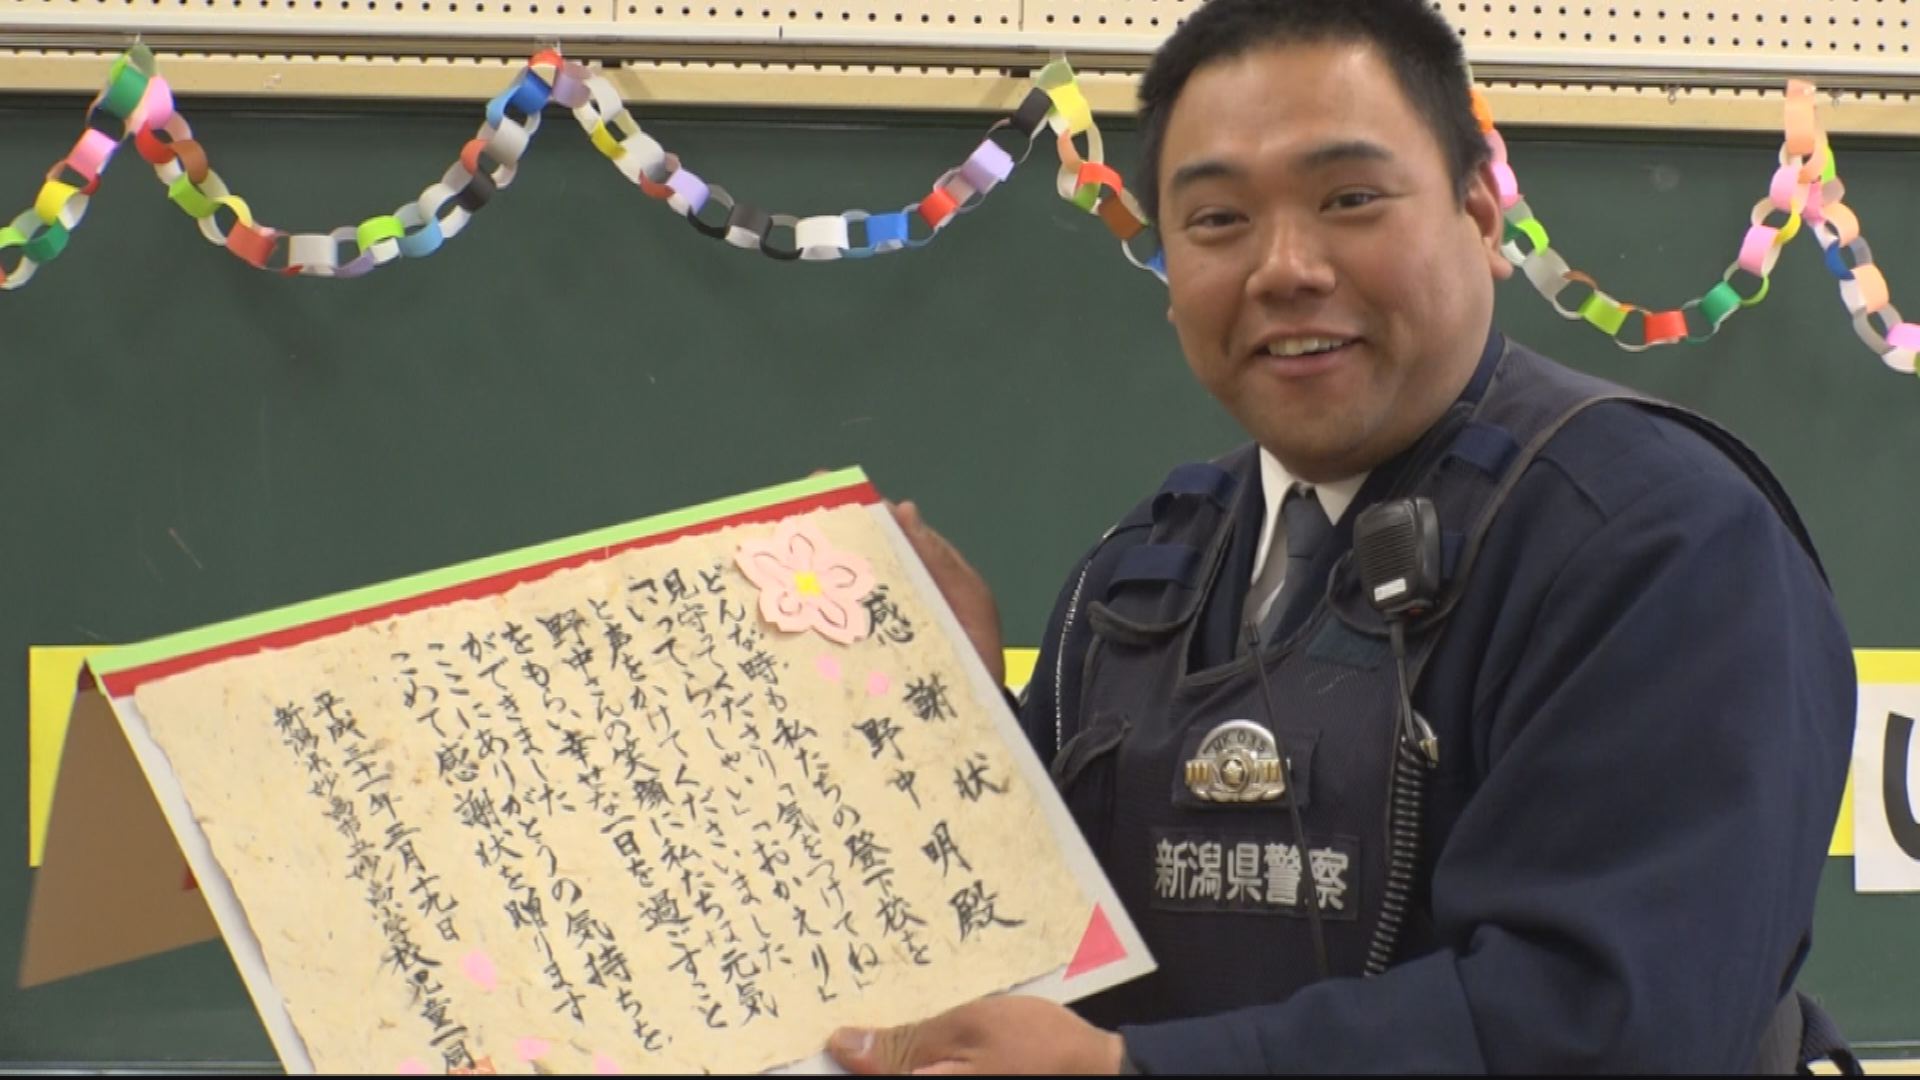 感謝状
野中明殿
どんな時も私たちの登下校を
見守ってくださり「気をつけてね」
「いってらっしゃい」「おかえり」
と声をかけてくださいました
野中さんの笑顔に私たちは元気
をもらい幸せな一日を過ごすこと
ができました
ここにありがとうの気持ちを
こめて感謝状を贈ります
平成三十一年三月十九日
新潟県妙高市立妙高小学校児童一同
UK 035
新潟県警察